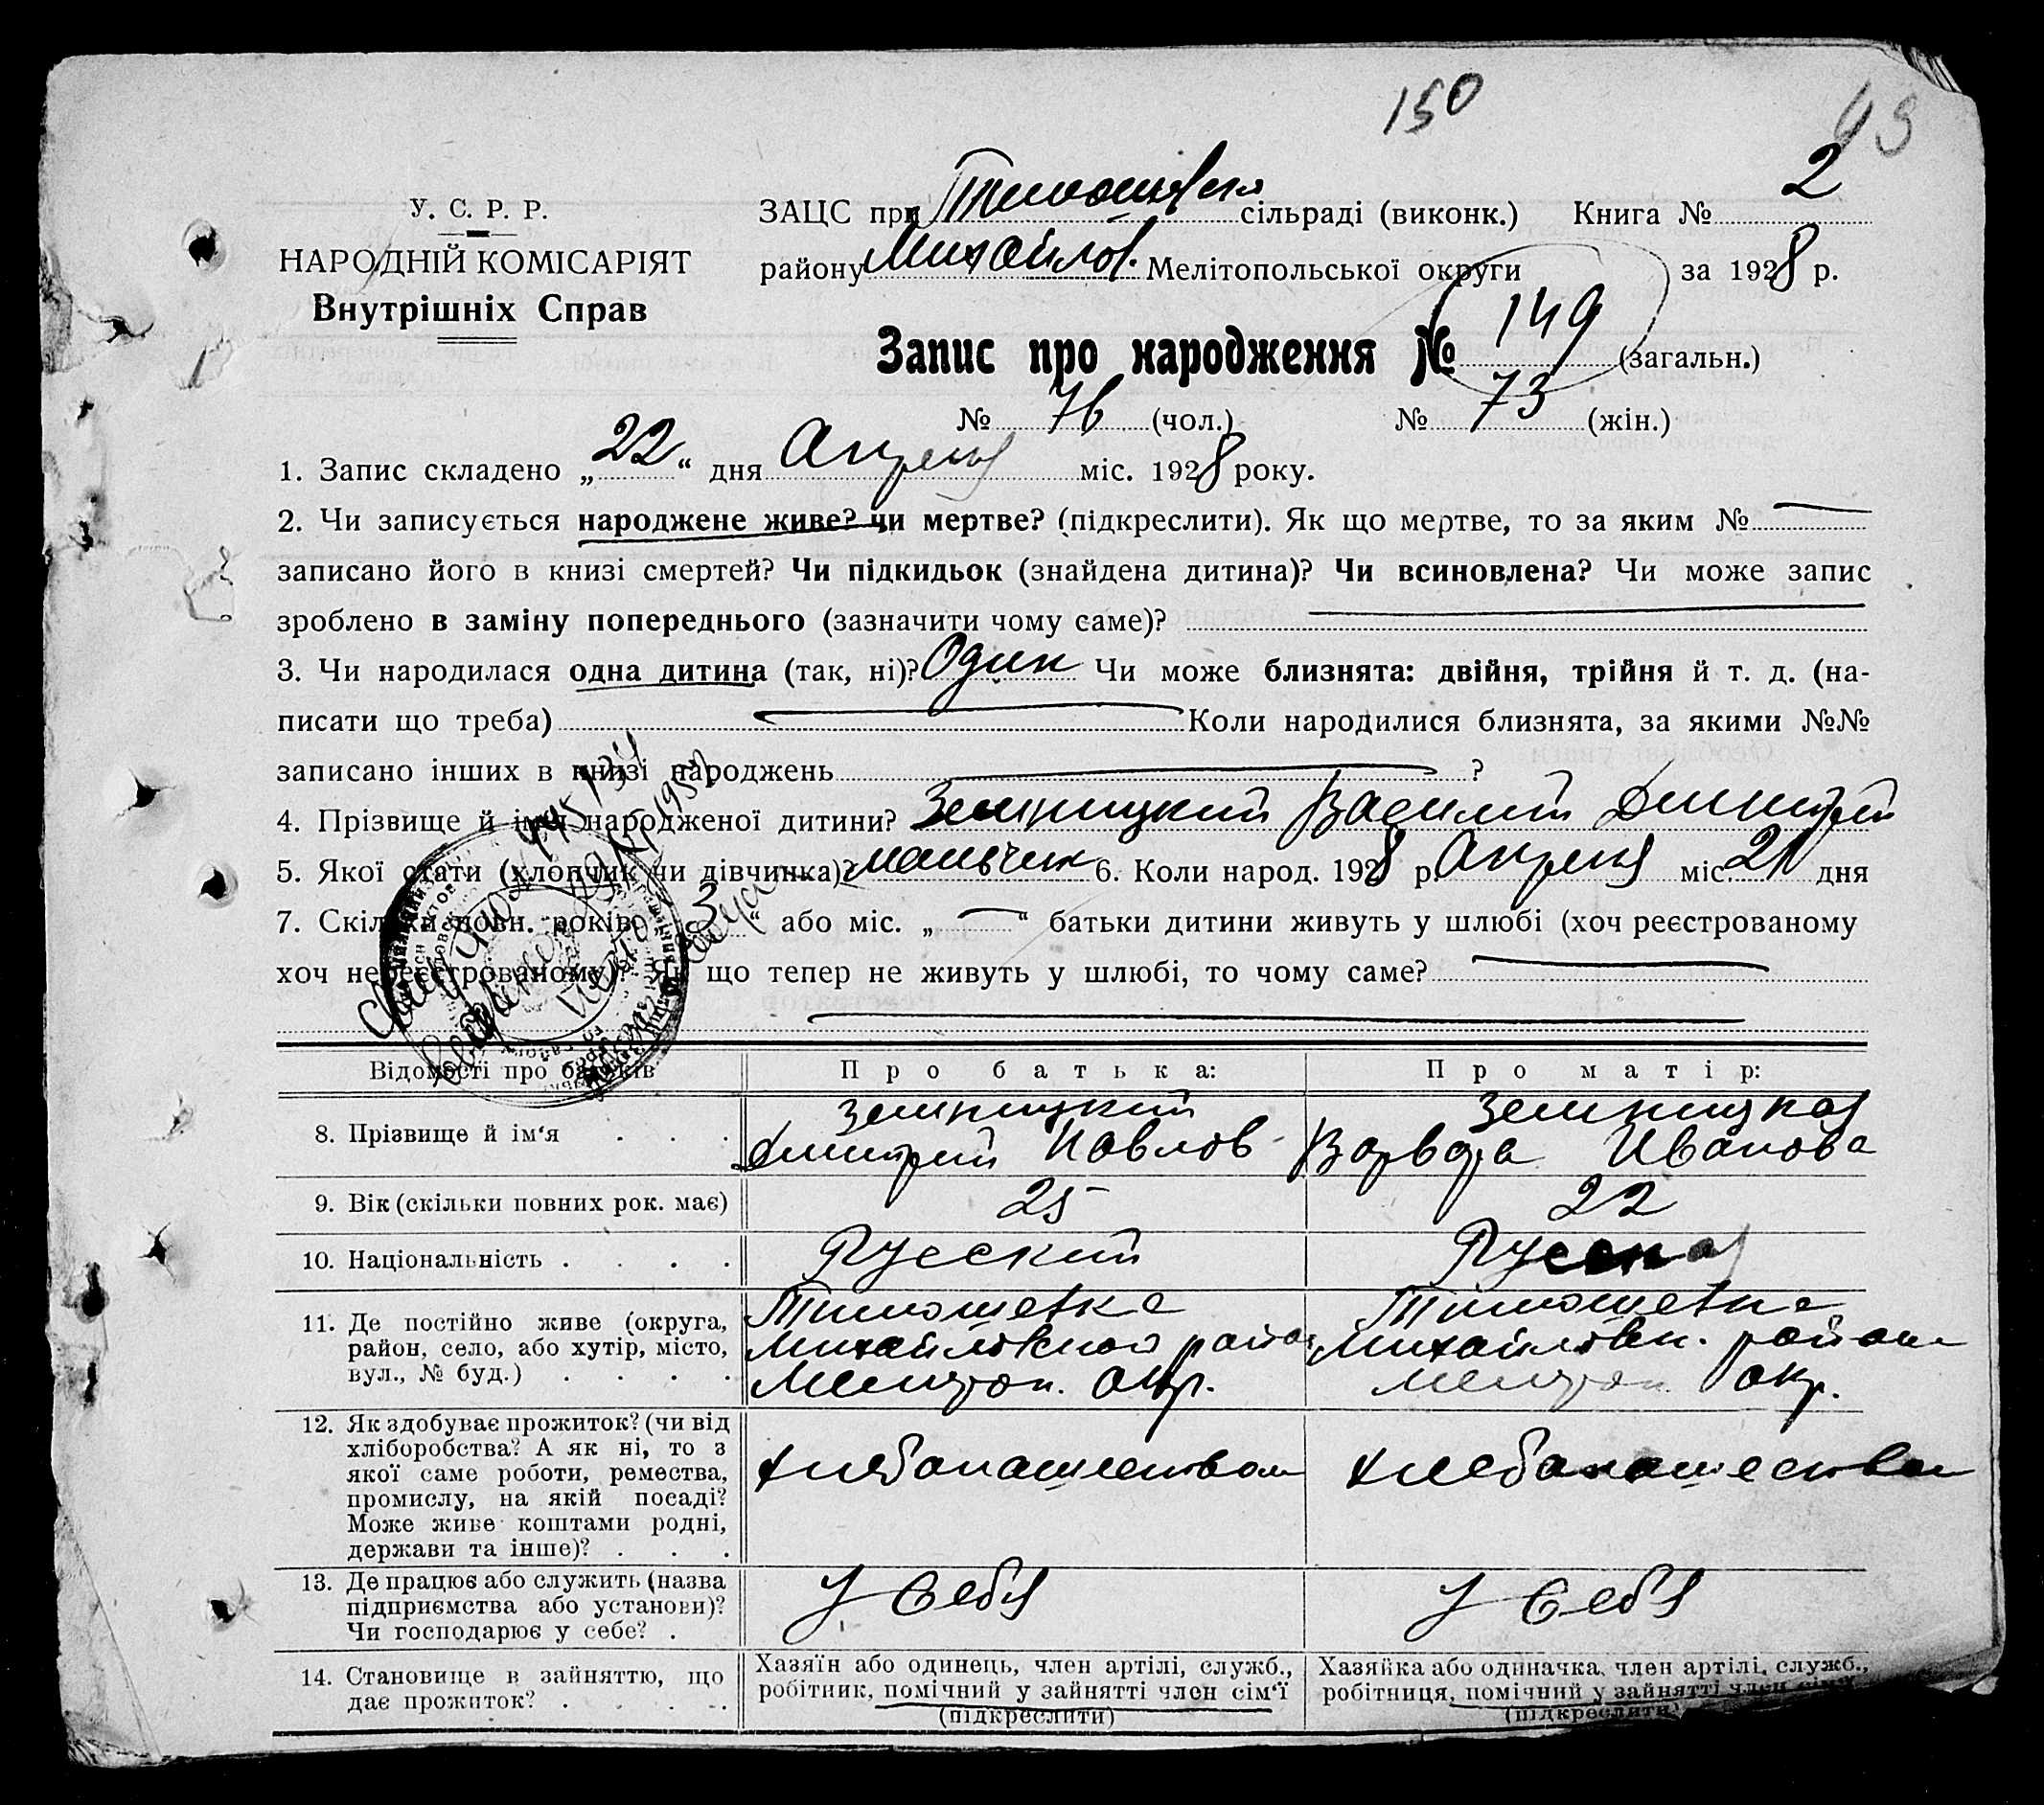 150
93
У. С. Р. Р.
НАРОДНІЙ КОМІСАРІЯТ
Внутрішніх Справ
ЗАЦС при Тимошевск сільраді (виконк.) Книга № 2
району Михайлов. Мелітопольської округи за 1928 р.
Запис про народження № 149 (загальн.)
№ 76 (чол.) № 73 (жін.)
1. Запис складено „22“ дня Апреля міс. 1928 року.
2. Чи записується народжене живе? чи мертве? (підкреслити). Як що мертве, то за яким №
записано його в книзі смертей? Чи підкидьок (знайдена дитина)? Чи всиновлена? Чи може запис
зроблено в заміну попереднього (зазначити чому саме)?
3. Чи народилася одна дитина (так, ні)? Один Чи може близнята: двійня, трійня й т. д. (на-
писати що треба) Коли народилися близнята, за якими №№
записано інших в книзі народжень ?
4. Прізвище й імя народженої дитини?Земницкий Василий Дмитрий
5. Якої стати (хлопчик чи дівчинка)? мальчик 6. Коли народ. 1928 р. Апреля міс. 21 дня
7. Скільки повн. років „3“ або міс. „ “ батьки дитини живуть у шлюбі (хоч реєстрованому
хоч нереєстрованому) Як що тепер не живуть у шлюбі, то чому саме?
Відомості про батьків Про батька: Про матір:
8. Прізвище й ім‘я . . . Земницкий Дмитрий Павлов Земницкая Варвара Иванова
9. Вік (скільки повних рок. має) 25 22
10. Національність . . . . Русский Русская
11. Де постійно живе (округа,
район, село, або хутір, місто,
вул., № буд.) . . . .
Тимошевка
Михайловского района
Мелитоп. окр.
Тимошевка
Михайловск. района
Мелитоп. окр.
12. Як здобуває прожиток? (чи від
хліборобства? А як ні, то з
якої саме роботи, ремества,
промислу, на якій посаді?
Може живе коштами родні,
держави та інше)? . . .
хлебопашеством хлебопашеством
13. Де працює або служить (назва
підприємства або установи)?
Чи господарює у себе? .
У себя У себя
14. Становище в зайняттю, що
дає прожиток? . . . .
Хазяїн або одинець, член артілі, служб.,
робітник, помічний у зайнятті член сім‘ї
(підкреслити)
Хазяйка або одиначка, член артілі, служб.,
робітниця, помічний у зайнятті член сім‘ї
(підкреслити)